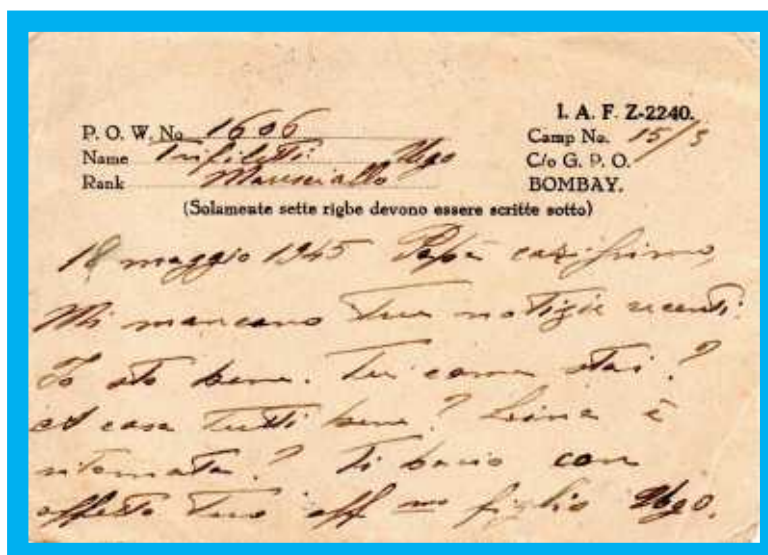 I. A. F. Z-2240.
P. O. W. No 1606 Camp No. 15/3
Name Trifiletti Ugo C/o G. P. O.
Rank Maresciallo BOMBAY.
(Solamente sette righe devono essere scritte sotto)
18 maggio 1945 Papà carissimo,
Mi mancano tue notizie recenti.
Io sto bene. Tu come stai?
A casa tutti bene? Lina è
ritornata? Ti bacio con
affetto tuo aff mo figlio Ugo.